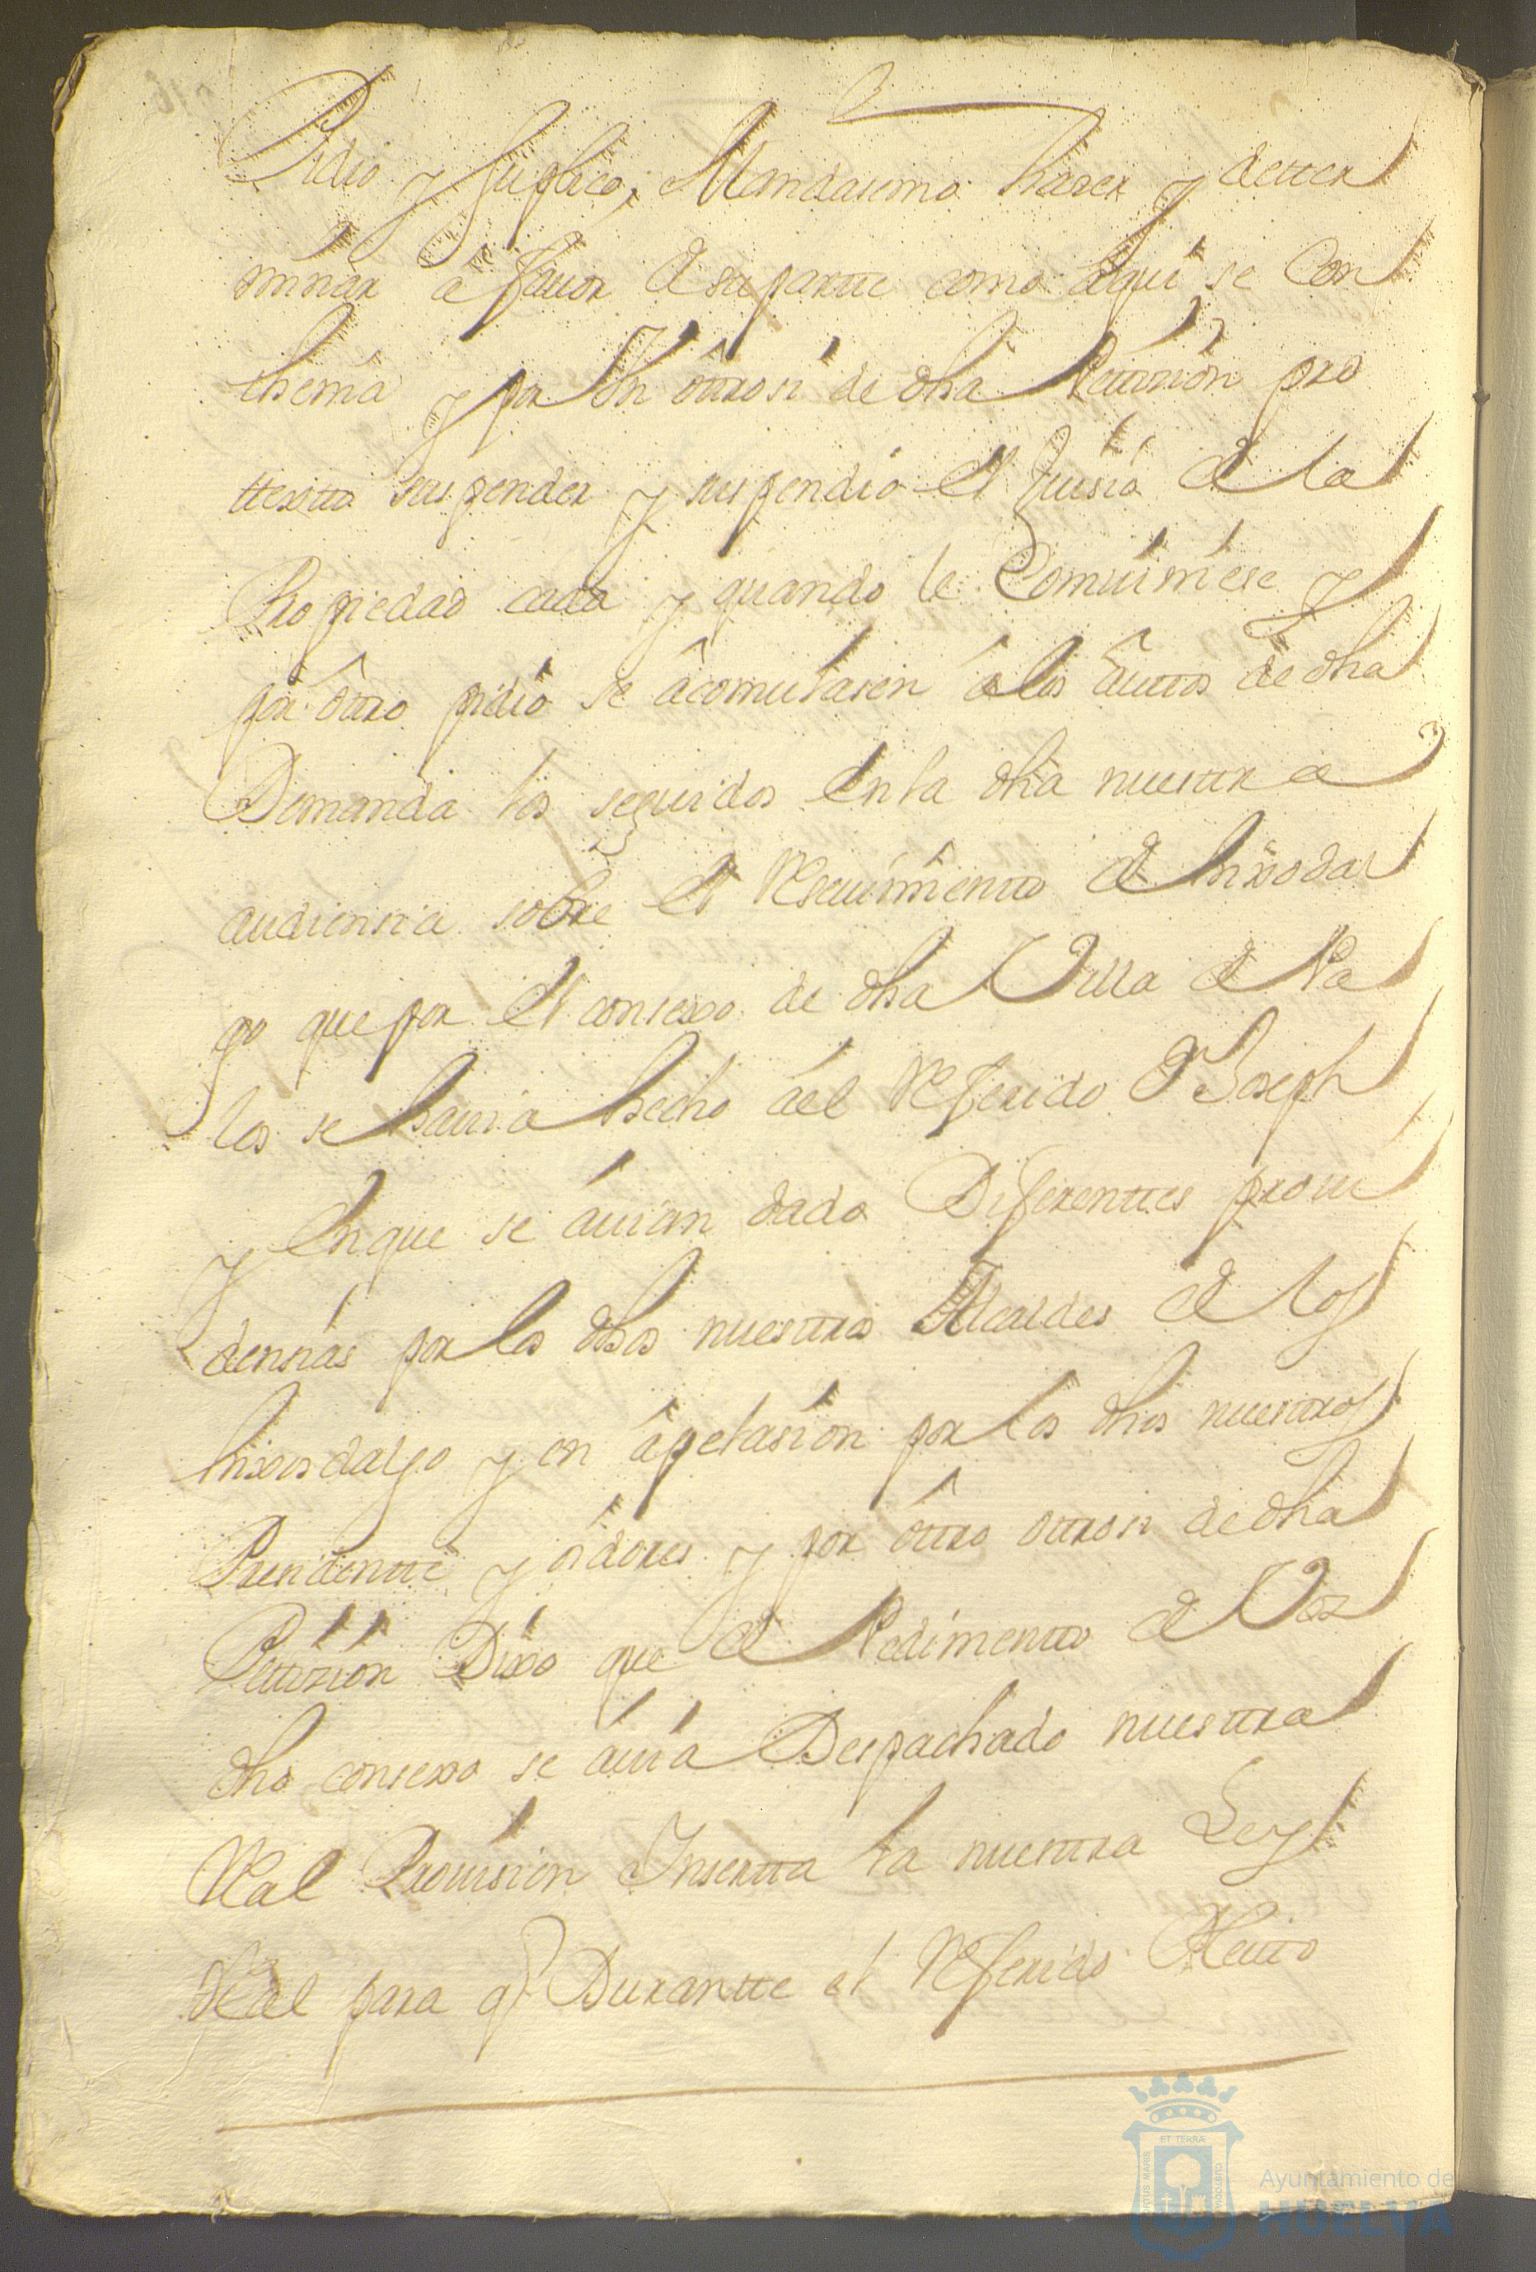 Pidio y suplico, Mandasemo hazer y detter
minar á fauor de suparte como aqui se Con
thenia y por Un ottrosi de dha Petizion pro
ttextto suspender y suspendió el Juisio de la
Propiedad cada y quando le Comuiniese y
por ottro pidio se acomulasen á los Auttos de dha
Demanda los seguidos en la dha nuestra
audiensia sobre el Reseuimientto de hixodal
go que por el consexo de dha Villa de Pa
los se hauia hecho áel Referido Dn Joseph
y en que se áuian dado Diferenttes proui
densias por los dhos nuestros Alcaldes de los
hixosdalgo y en ápelasion por los dhos nuestros
Presidentte y oidores y por ottro ottrosi de dha
Petizion Dixo que de Pedimentto de Vos
dho consexo se áuia Despachado nuesttra
Real Prouision Insertta la nuesttra Ley
Real para q Durantte el Referido Pleitto
ET TERRÆ
PORTUS MARIS
CUSTODIA
Ayuntamiento de
HUELVA